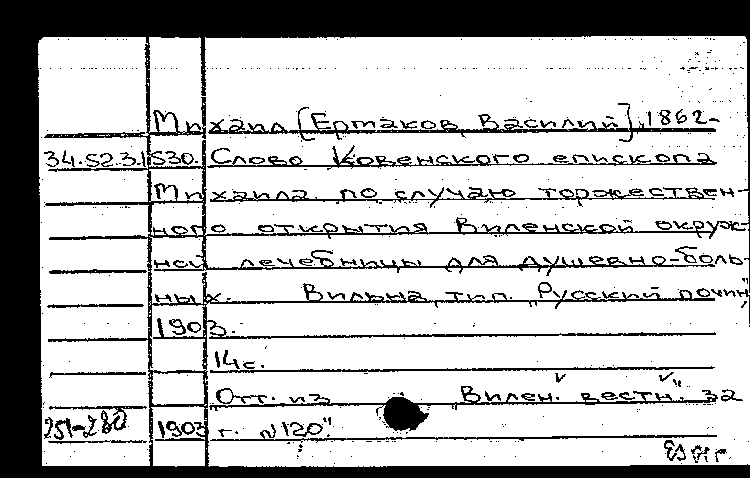 Михаил [Ермаков, Василий], 1862-
34.52.3.1530. Слово Ковенского епископа
Михаила по случаю торжествен-
ного открытия Виленской окруж-
ной лечебницы для душевно-боль-
ных. Вильна, тип. "Русский почин",
1903.
14 с.
"Отт. из "Вилен. вестн." за
251-280 1903 г. №120".